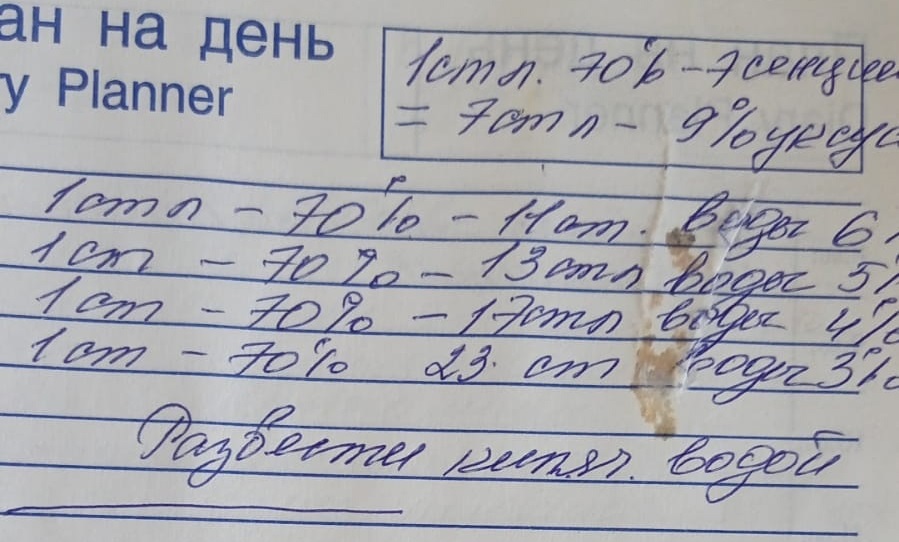 ан на день
y Planner
1 ст л. 70% - эссенции
= 7 ст л - 9% уксус
1 ст л - 70% - 11 ст. воды 6%
1 ст - 70% - 13 ст л воды 5%
1 ст - 70% - 17 ст л воды 4%
1 ст - 70% 23. ст воды 3%
Развести кипяч. водой